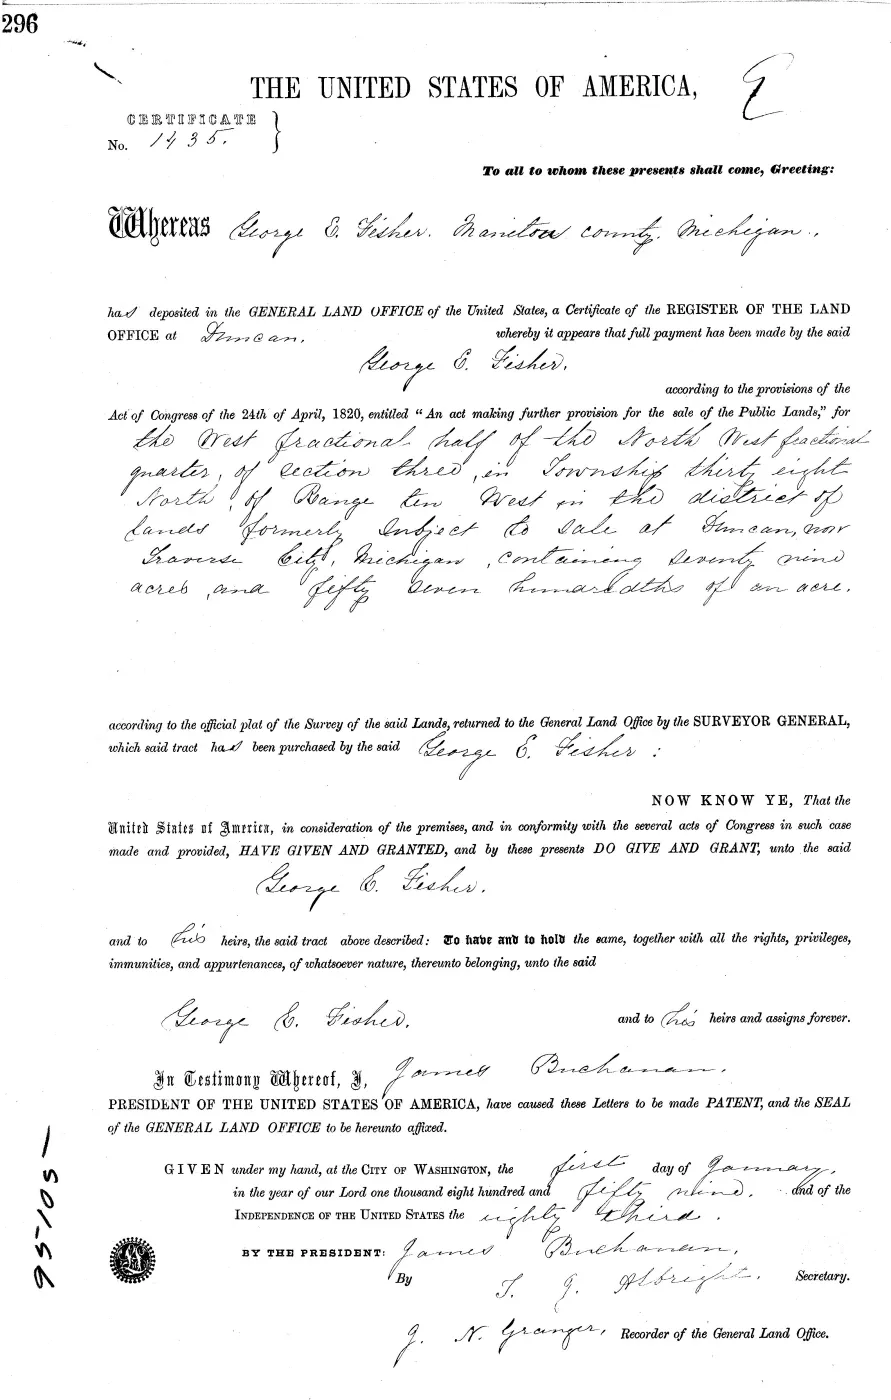 296
THE UNITED STATES OF AMERICA,
CERTIFICATE
No. 1435.
To all to whom these presents shall come, Greeting:
Whereas George E. Fisher. Manitou county. Michigan.,
has deposited in the GENERAL LAND OFFICE of the United States, a Certificate of the REGISTER OF THE LAND
OFFICE at Duncan. whereby it appears that full payment has been made by the said
George E. Fisher.
according to the provisions of the
Act of Congress of the 24th of April, 1820, entitled "An act making further provision for the sale of the Public Lands," for
the West fractional half of the North West fractional
quarter, of section three, in Township thirty eight
North, of Range ten West in the district of
lands formerly subject to sale at Duncan, now
Traverse City, Michigan, containing seventy nine
acres, and fifty seven hundredths of an acre.
according to the official plat of the Survey of the said Lands, returned to the General Land Office by the SURVEYOR GENERAL,
which said tract has been purchased by the said George E. Fisher:
NOW KNOW YE, That the
United States of America, in consideration of the premises, and in conformity with the several acts of Congress in such case
made and provided, HAVE GIVEN AND GRANTED, and by these presents DO GIVE AND GRANT, unto the said
George E. Fisher.
and to his heirs, the said tract above described: To have and to hold the same, together with all the rights, privileges,
immunities, and appurtenances, of whatsoever nature, thereunto belonging, unto the said
George E. Fisher. and to his heirs and assigns forever.
In Testimony Whereof, I, James Buchanan.
PRESIDENT OF THE UNITED STATES OF AMERICA, have caused these Letters to be made PATENT, and the SEAL
of the GENERAL LAND OFFICE to be hereunto affixed.
GIVEN under my hand, at the CITY OF WASHINGTON, the first day of January.
in the year of our Lord one thousand eight hundred and fifty nine. and of the
INDEPENDENCE OF THE UNITED STATES the eighty third.
BY THE PRESIDENT: James Buchanan.
By T. J. Albright. Secretary.
J. N. Granger, Recorder of the General Land Office.
95-105-